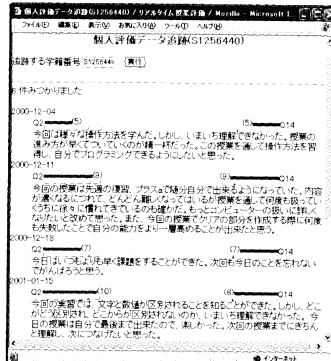 個人評価データ追跡(S1256440) / リアルタイム授業評価 / Mozilla - Microsoft I...
ファイル(F) 編集(E) 表示(V) お気に入り(A) ツール(T) ヘルプ(H)
個人評価データ追跡(S1256440)
追跡する学籍番号 S1256440 実行
6 件みつかりました
2000-12-04
Q2 (5) (5) Q14
今回は様々な操作方法を学んだ。しかし、いまいち理解できなかった。授業の
進み方が早くてついていくのが精一杯だった。この授業を通して操作方法を習
得し、自分でプログラミングできるようにしたいと思った。
2000-12-11
Q2 (9) (9) Q14
今回の授業は先週の復習、プラスαで随分自分で出来るようになっていた。内容
が濃くなるにつれて、どんどん難しくなってはいるが授業を通して何度も扱ってい
くうちに徐々に慣れてきているのも確かだ。もっとコンピューターの扱いに詳しく
なりたいと改めて思った。また、今回の授業でクリアの部分を作成する際に何度
も失敗したことで自分の能力をより一層高めることが出来たと思う。
2000-12-18
Q2 (7) (7) Q14
今日はいつもよりも早く課題をすることができた。次回も今日のことを忘れない
でがんばろうと思う。
2001-01-15
Q2 (10) (8) Q14
今回の実習では、文字と数値が区別されることを知ることができた。しかし、どこ
がどう区別され、どこからが区別されないのか、いまいち理解できなかった。今
日の授業は自分で最後まで出来たので、楽しかった。次回の授業までにきちん
と理解し、次につなげたいと思う。
インターネット